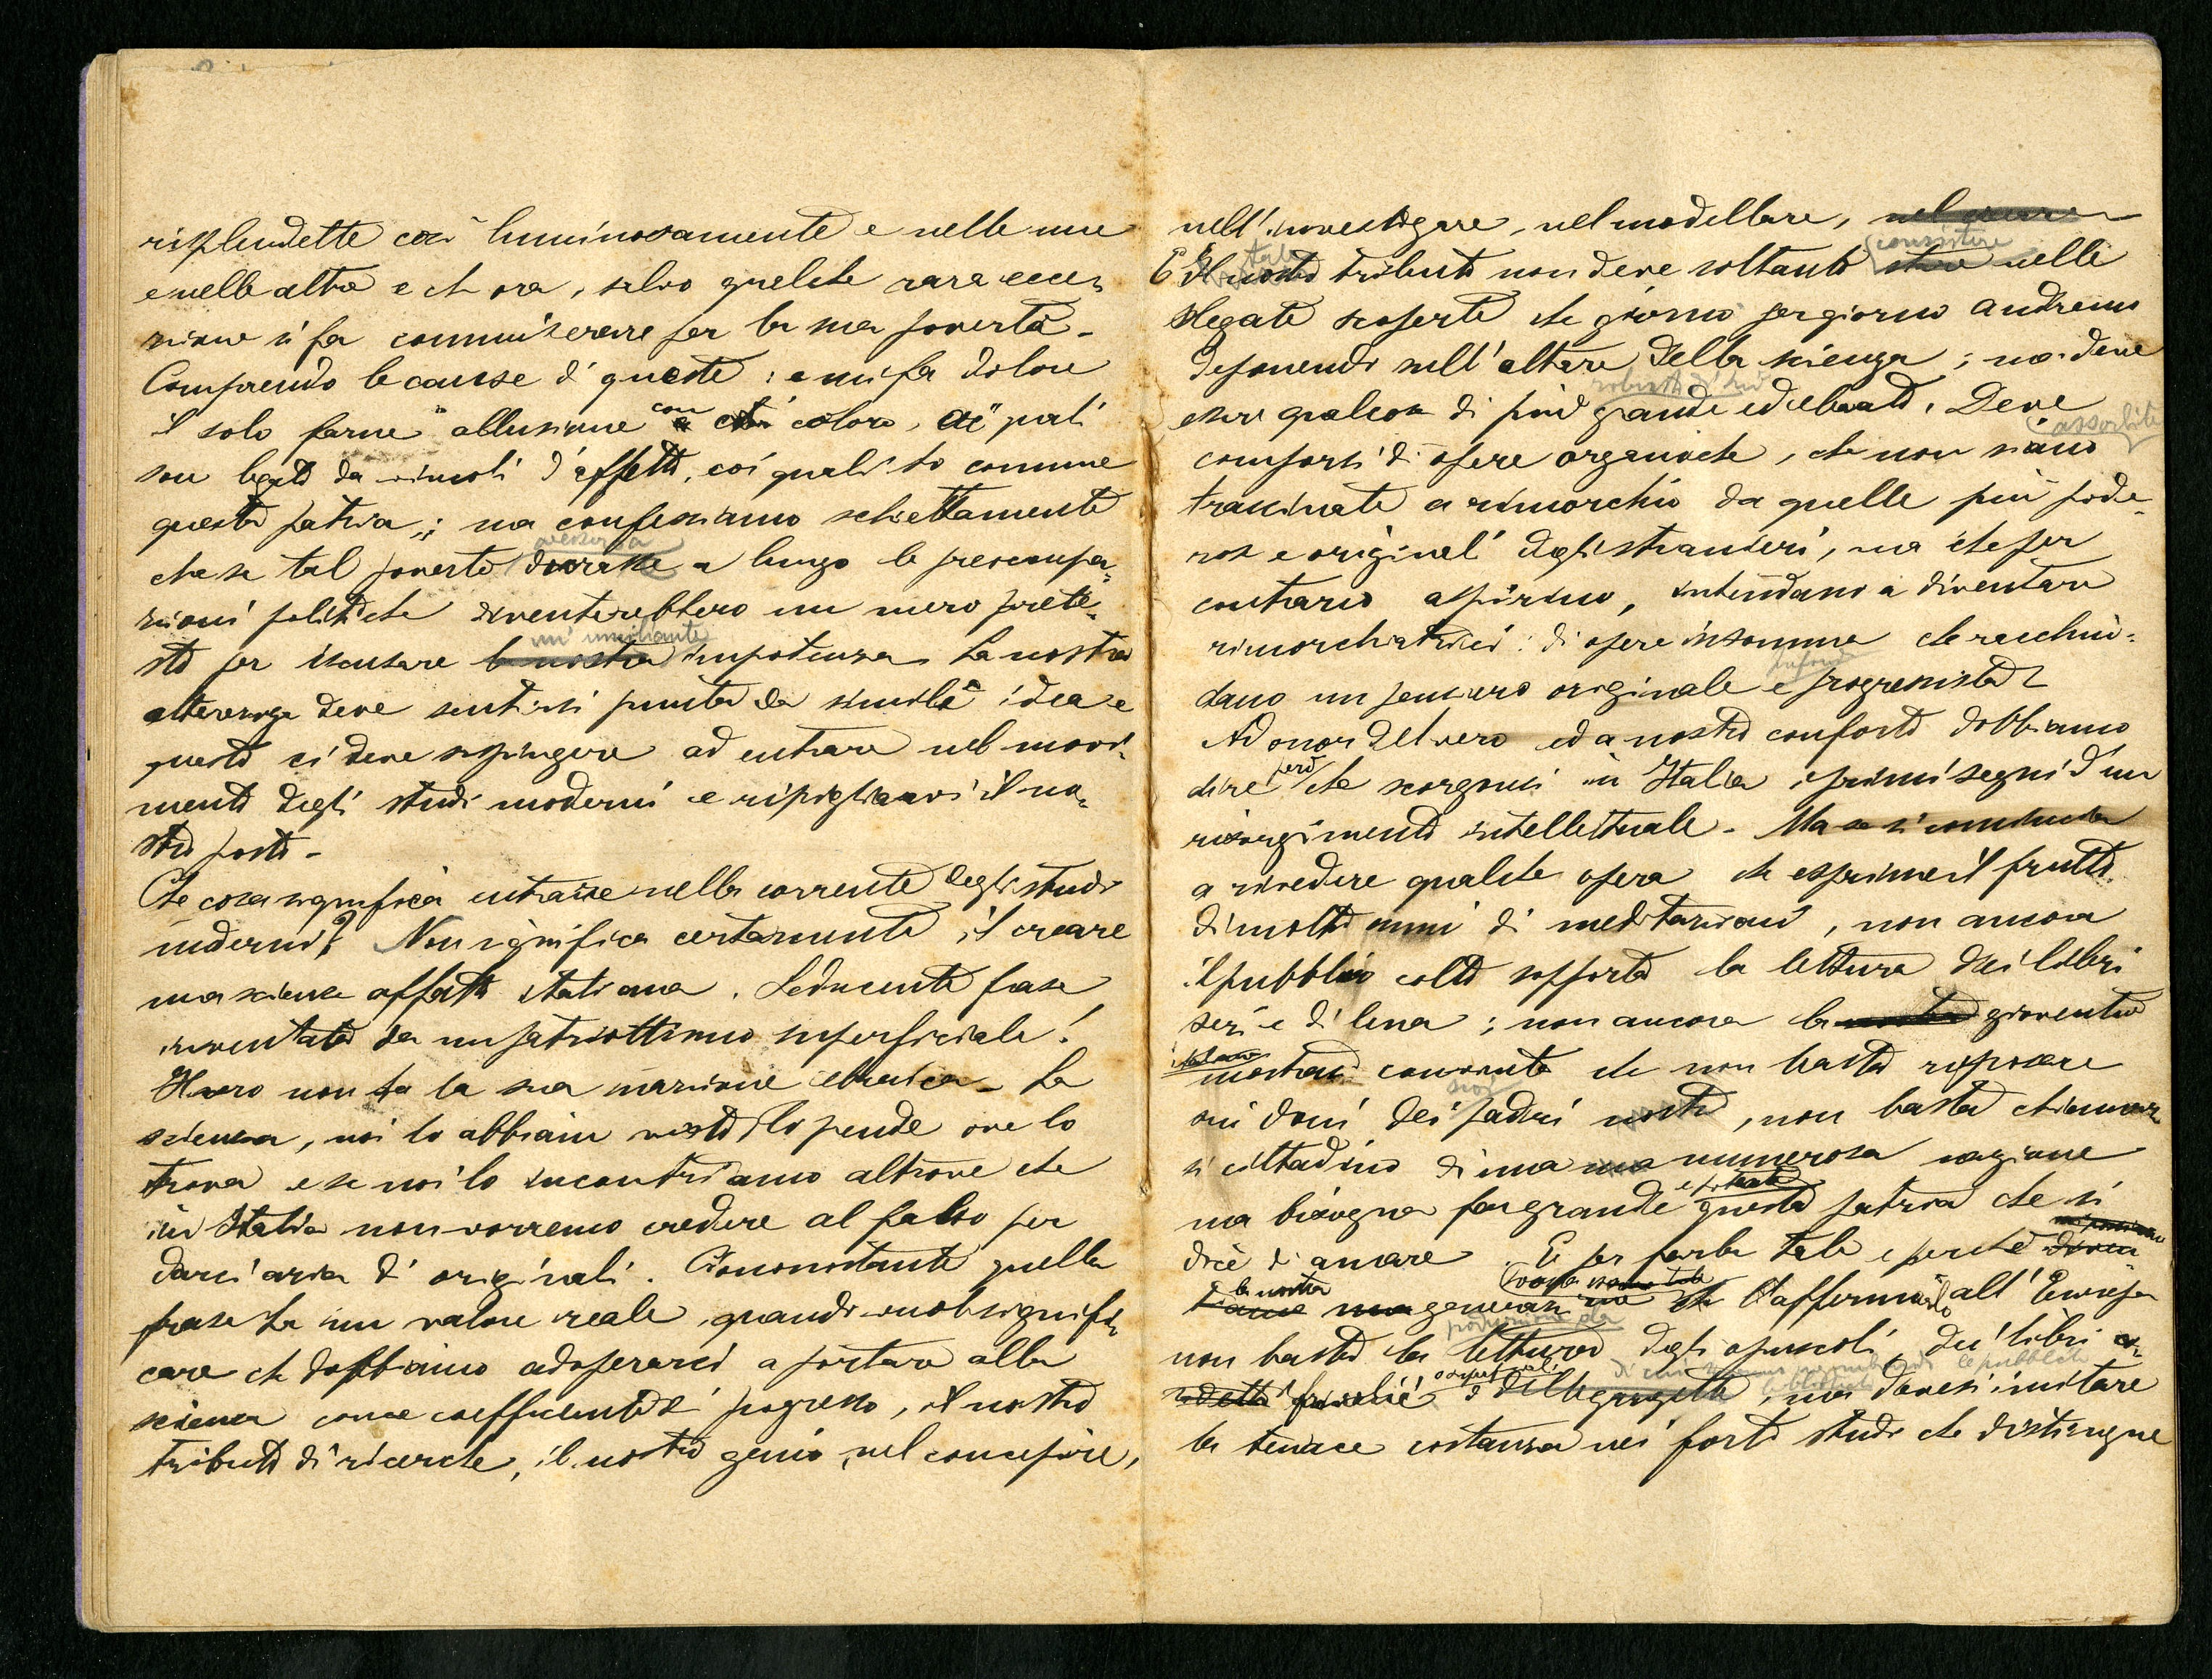 risplendette così luminosamente e nelle une
e nelle altre e che ora, salvo qualche rara ecce-
zione si fa commiserare per la sua povertà.
Comprendo le cause di queste: e mi fa dolore
il solo farne allusione con coloro, ai quali
son legato da vincoli d'affetto, coi quali ho comune
questa patria; ma confessiamo schiettamente
che se tal povertà durasse a lungo le preoccupa-
zioni politiche diventerebbero un mero prete-
sto per iscusare la nostra un' umiliante impotenza. La nostra
alterezza deve sentirsi punta da simile idea e
questo ci deve sospingere ad entrare nel movi-
mento degli studi moderni e ripigliarvi il no-
stro posto.
Che cosa significa entrare nella corrente degli studi
moderni? Non significa certamente il creare
una scienza affatto italiana. Seducente frase
inventata da un patriottismo superficiale!
Il vero non ha la sua nazione
scienza, noi lo abbiam visto, lo prende ove lo
trova e se noi lo incontriamo altrove che
in Italia non vorremo credere al falso per
darci aria di originali. Ciononostante quella
frase ha un valore reale quando vuol signifi-
care che dobbiamo adoperarci a portare alla
scienza come coefficiente di progresso, il nostro
tributo di ricerche, il nostro genio nel concepire,
nell'investigare, nel modellare,
E il nostro tale tributo non deve soltanto consistere nelle
slegate scoperte che giorno per giorno andremo
deponendo sull'altare della scienza; ma deve
essere qualcosa di più grande ed elevato. Deve
comporsi di opere organiche, che non siano assorbite
trascinate a rimorchio da quelle più pode-
rose e originali degli stranieri, ma che per
contrario aspirino, intendano a diventare
rimorchiatrici: di opere insomma che racchiu-
dano un pensiero originale e progressista.
Ad onor del vero ed a nostro conforto dobbiamo
dire però che scorgonsi in Italia i primi segni d'un
risorgimento intellettuale. Ma se si comincia
a rivedere qualche opera che esprime il frutto
di molti anni di meditazioni, non ancora
il pubblico colto sopporta la lettura dei libri
seri e di lena; non ancora la nostra gioventù
italiana mostrasi convinta che non basta riposare
sui doni dei padri nostri suoi, non basta chiamar-
si cittadino di una numerosa nazione
ma bisogna far grande e forte questa patria che si
dice di amare. E per farla tale e perchè
la nostra generazione l'affermi all'Europa
non basta la lettura degli opuscoli, dei libri
frivoli e delle gazzette, ma devesi imitare
la tenace costanza nei forti studi che distingue